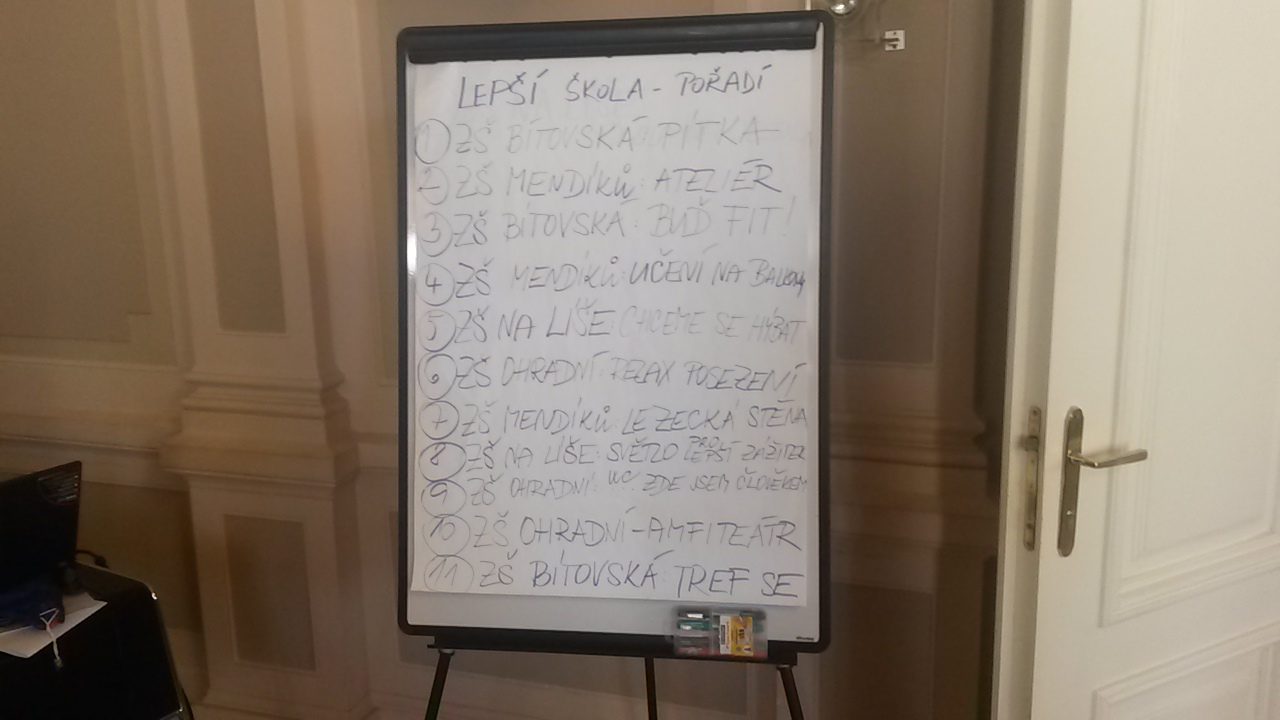 LEPŠÍ ŠKOLA - POŘADÍ
1 ZŠ BÍTOVSKÁ: PÍTKA
2 ZŠ MENDÍKŮ: ATELIÉR
3 ZŠ BÍTOVSKÁ: BUĎ FIT!
4 ZŠ MENDÍKŮ: UČENÍ NA
5 ZŠ NA LÍŠE: CHCEME SE HÝBAT
6 ZŠ OHRADNÍ: RELAX POSEZENÍ
7 ZŠ MENDÍKŮ: LEZECKÁ STĚNA
8 ZŠ NA LÍŠE: SVĚTLO PRO LEPŠÍ ZÁŽITEK
9 ZŠ OHRADNÍ: WC ZDE JSEM ČLOVĚKEM
10 ZŠ OHRADNÍ-AMFITEÁTR
11 ZŠ BÍTOVSKÁ: TREF SE